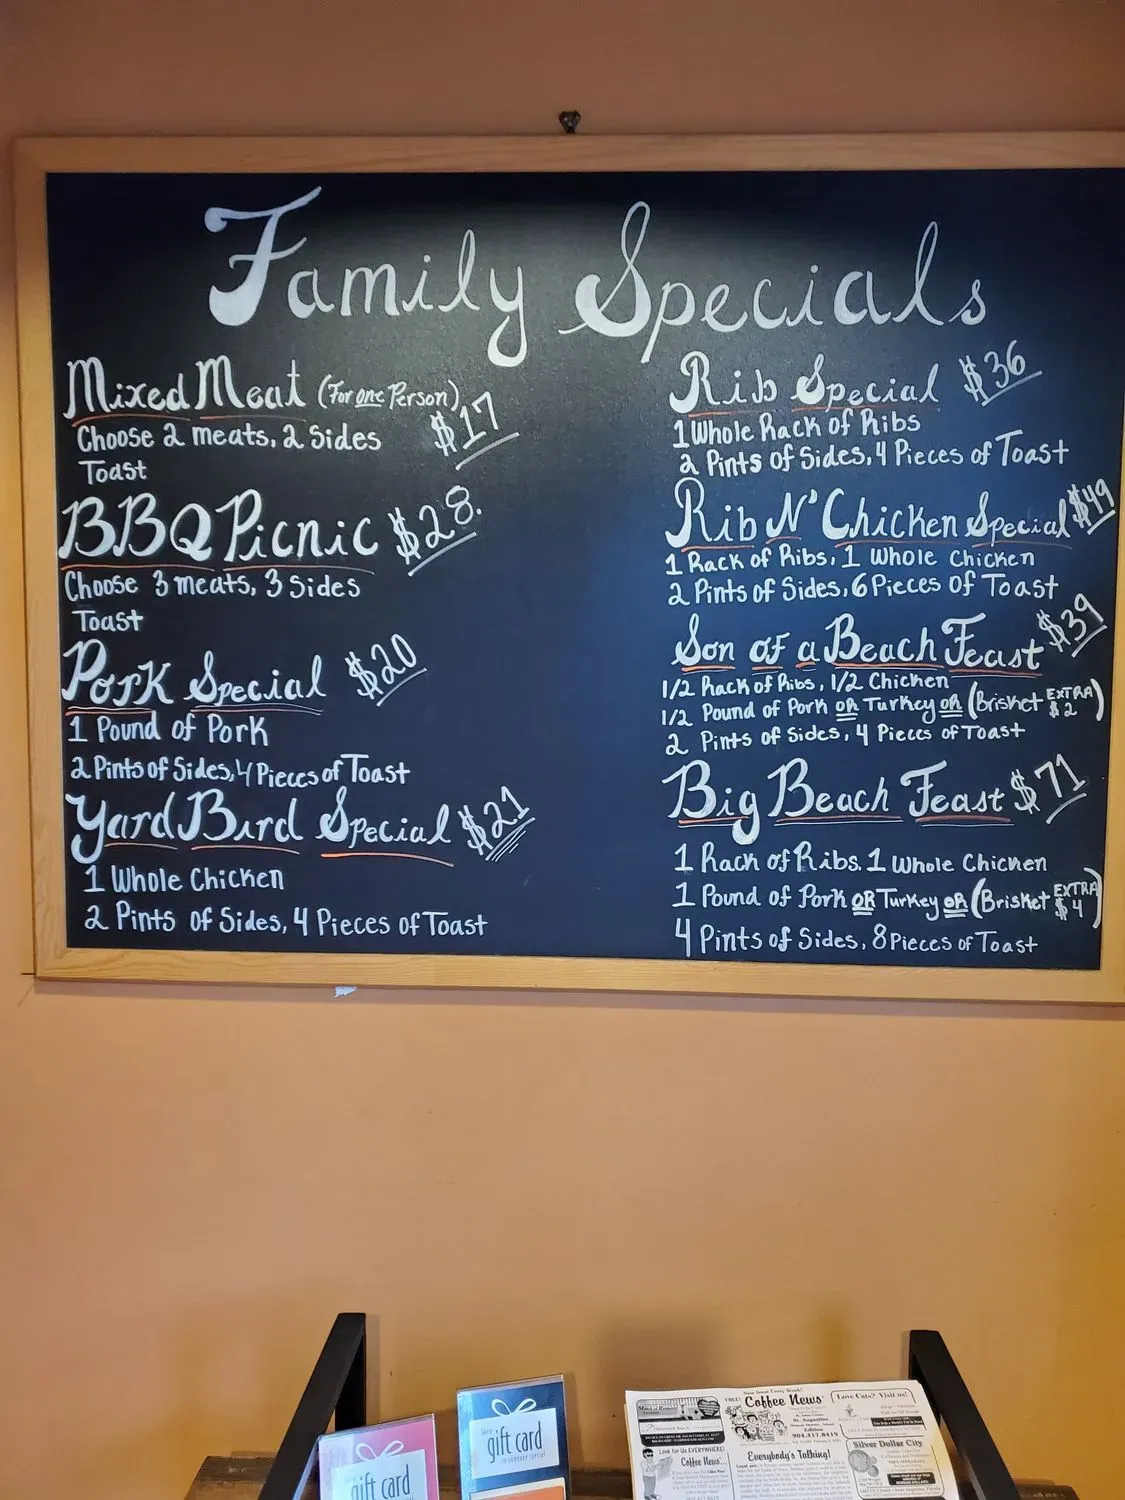 Family Specials
Mixed Meat (For one Person) $17
Choose 2 meats, 2 Sides
Toast
BBQ Picnic $28.
Choose 3 meats, 3 Sides
Toast
Pork Special $20
1 Pound of Pork
2 Pints of Sides, 4 Pieces of Toast
Yard Bird Special $21
1 Whole Chicken
2 Pints of Sides, 4 Pieces of Toast
Rib Special $36
1 Whole Rack of Ribs
2 Pints of Sides, 4 Pieces of Toast
Rib N' Chicken Special $49
1 Rack of Ribs, 1 Whole Chicken
2 Pints of Sides, 6 Pieces of Toast
Son of a Beach Feast $39
1/2 Rack of Ribs, 1/2 Chicken
1/2 Pound of Pork OR Turkey OR (Brisket EXTRA $2)
2 Pints of Sides, 4 Pieces of Toast
Big Beach Feast $71
1 Rack of Ribs. 1 Whole Chicken
1 Pound of Pork OR Turkey OR (Brisket EXTRA $4)
4 Pints of Sides, 8 Pieces of Toast
gift card
gift card
FREE!
New Issue Every Week!
Coffee News
St. Augustine
Edition
904.417.8419
Love Cats? Visit us!
Look for Us EVERYWHERE!
Coffee News
Everybody's Talking!
Silver Dollar City